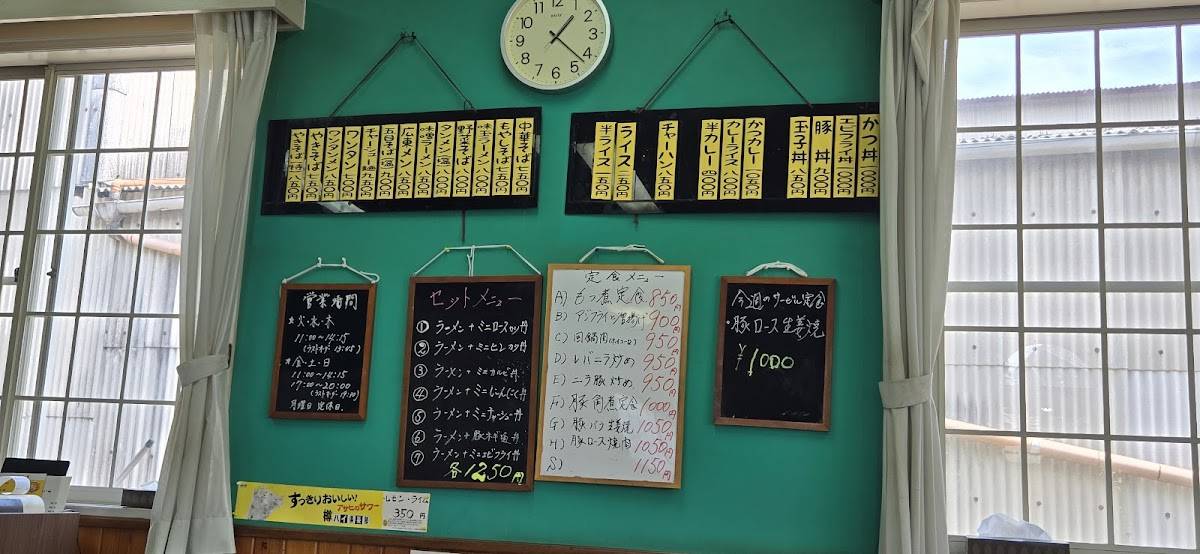 中華そば 七五〇円
もやしそば 七五〇円
味玉ラーメン 八五〇円
野菜そば 九五〇円
タンメン(塩) 九五〇円
味噌ラーメン 九五〇円
広東メン 九五〇円
五目そば(塩) 九〇〇円
チャーシュー麺 九五〇円
ワンタン 七〇〇円
ワンタンメン 八五〇円
やきそば 七五〇円
やきそば(特) 八五〇円
かつ丼 一〇〇〇円
エビフライ丼 一〇〇〇円
豚丼 九〇〇円
玉子丼 八五〇円
かつカレー 一〇五〇円
カレーライス 七〇〇円
半カレー 四〇〇円
チャーハン 八五〇円
ライス 二五〇円
半ライス 一五〇円
営業時間
火・水・木
11:00〜14:15
(ラストオーダー 13:45)
金・土・日
11:00〜14:15
17:00〜20:00
(ラストオーダー 19:30)
月曜日 定休日
セットメニュー
① ラーメン + ミニロースカツ丼
② ラーメン + ミニヒレカツ丼
③ ラーメン + ミニカルビ丼
④ ラーメン + ミニにんにく丼
⑤ ラーメン + ミニチャーシュー丼
⑥ ラーメン + 豚ネギ塩丼
⑦ ラーメン + ミニエビフライ丼
各1250円
定食メニュー
A) もつ煮定食 850円
B) アジフライ 900円
C) 回鍋肉(ホイコーロ) 950円
D) レバニラ炒め 950円
E) ニラ豚炒め 950円
F) 豚角煮定食 1000円
G) 豚バラ生姜焼 1050円
H) 豚ロース焼肉 1050円
S) 1150円
今週のサービス定食
・豚ロース生姜焼
¥1000
すっきりおいしい!
アサヒのサワー
樽ハイ倶楽部
レモン・ライム
350円